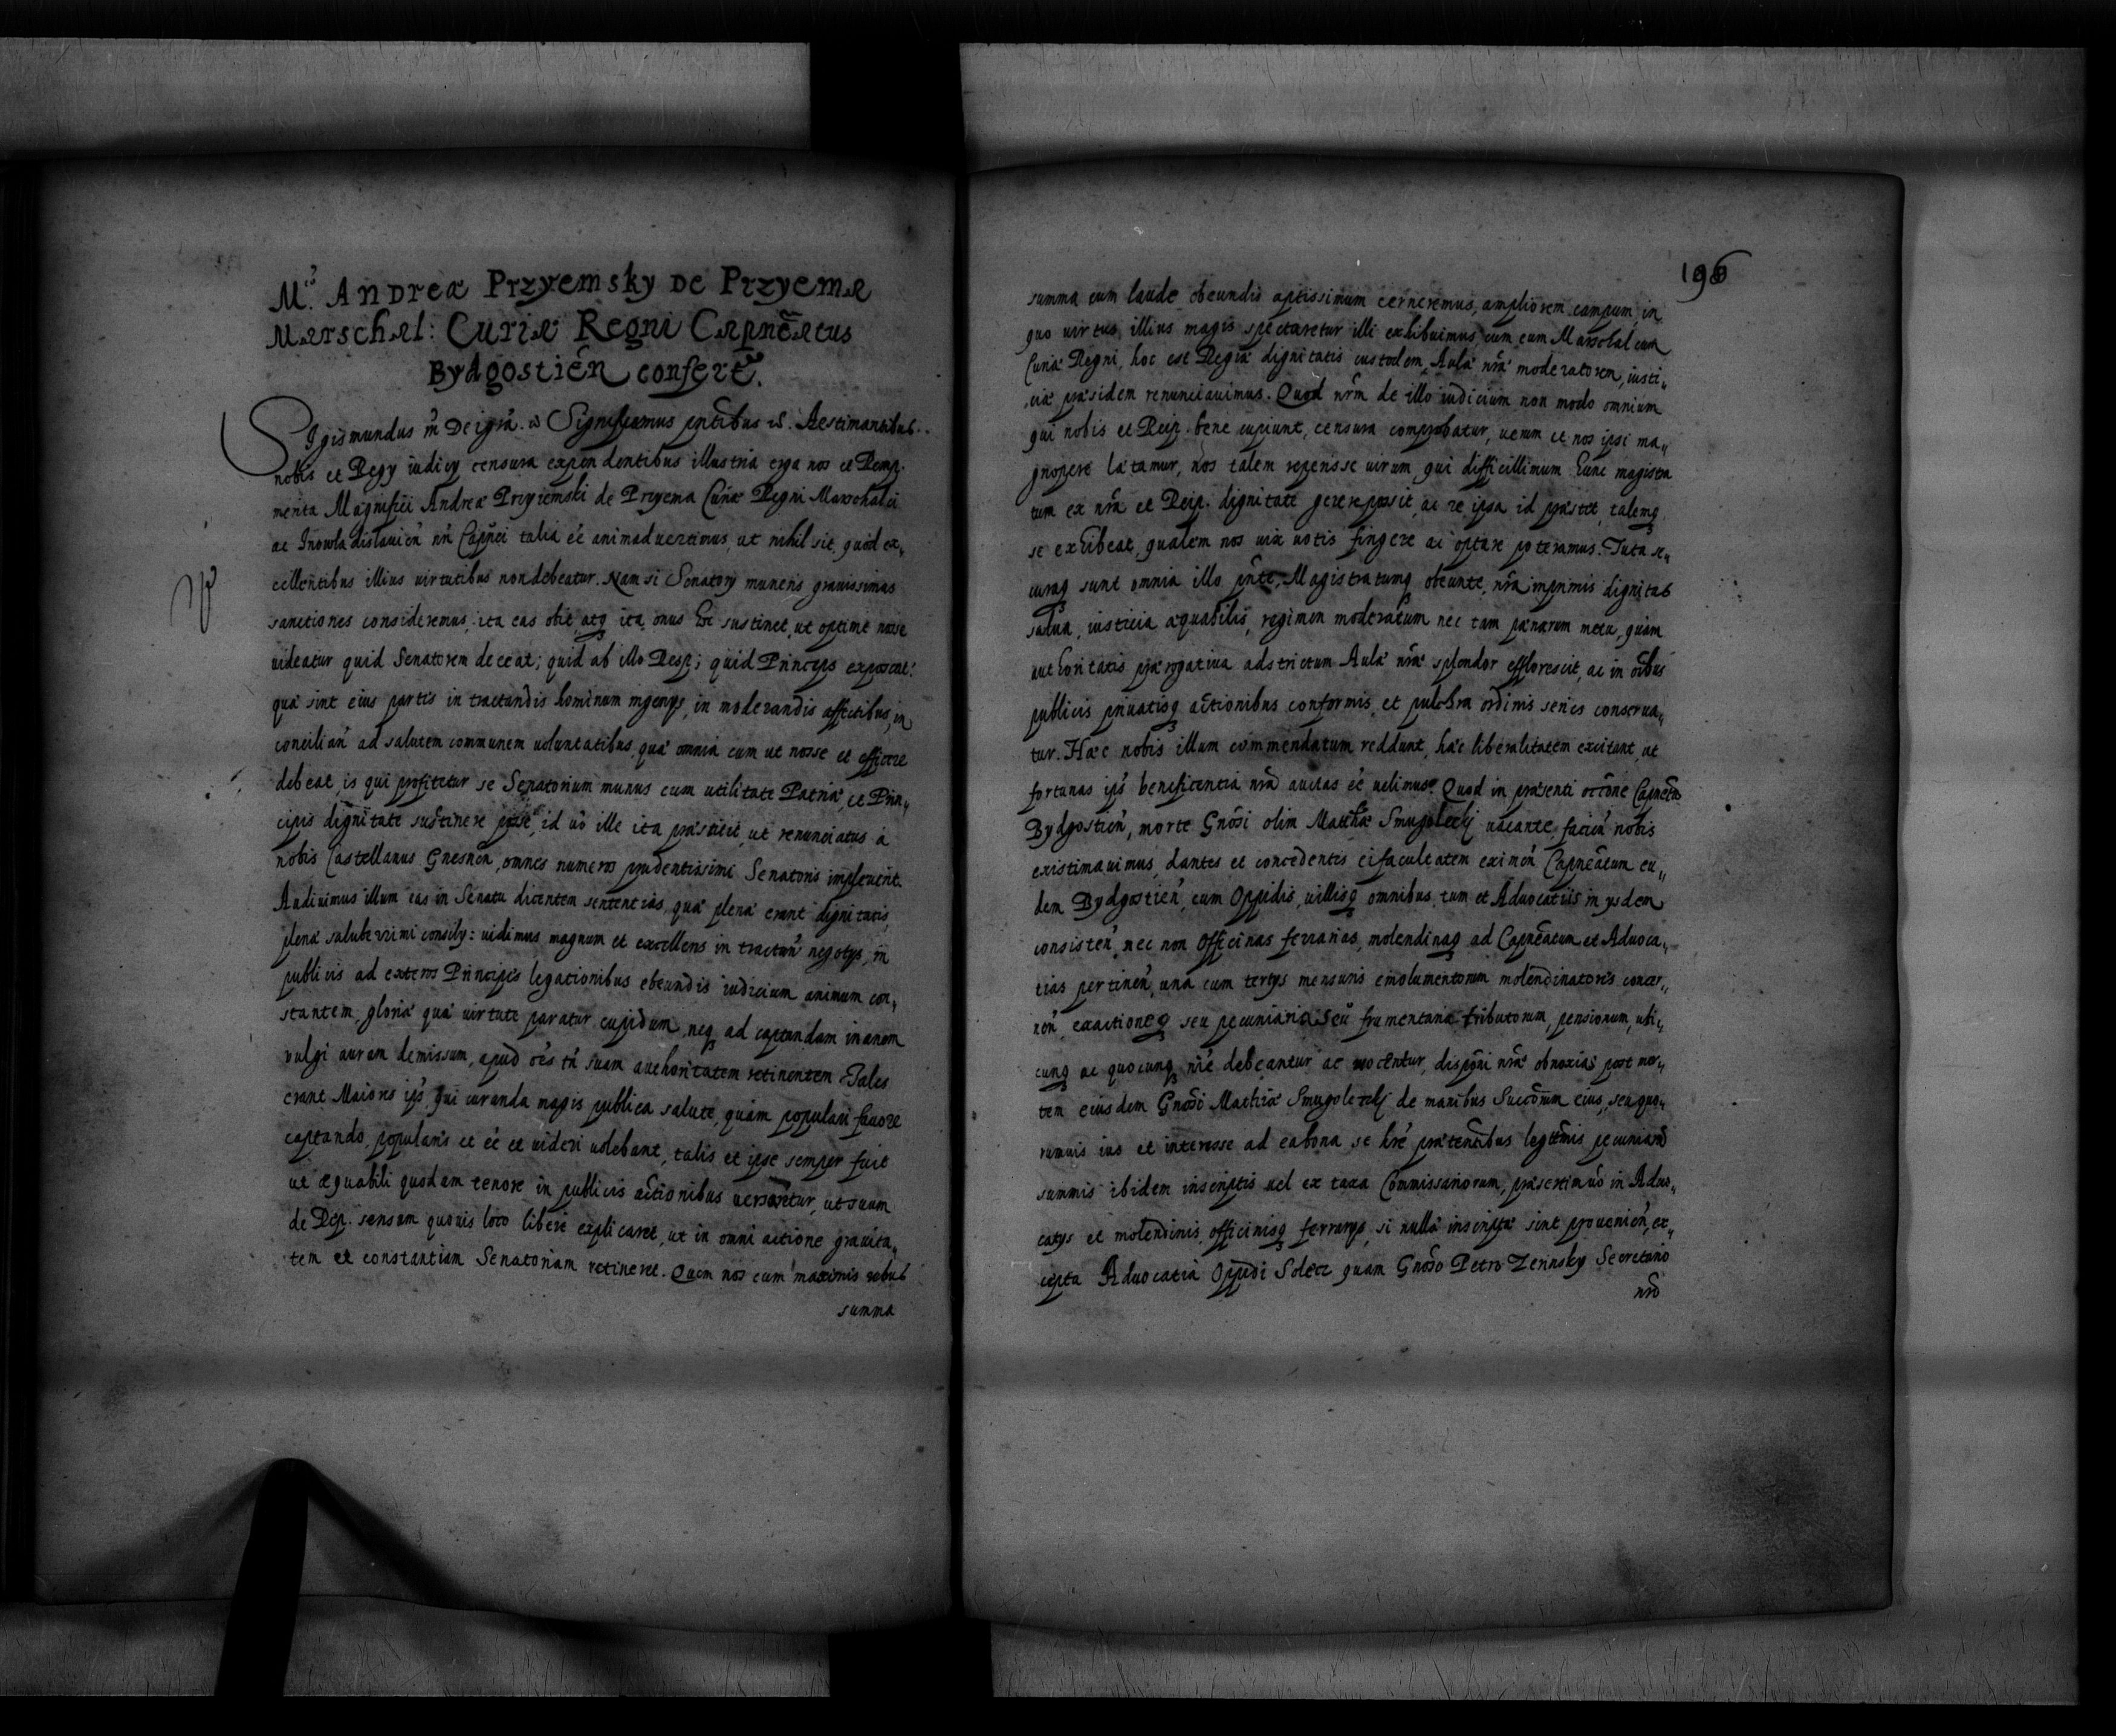 M.ci Andreæ Przyemsky de Przyema
Marschal: Curiæ Regni Capnēatus
Bydgostień confertr̃.
Sigismundus 3us Dei grã. etc. Significamus pñtibus etc. Aestimantibus
nobis et Regy iudicy censura expendentibus illustria erga nos et Remp.
menta Magnifici Andreæ Przyiemski de Przyema Curiæ Regni Marschalci
ac Inowladislauień nri Capnei talia eē animaduertimus, ut nihil sit, quod ex„
cellentibus illius virtutibus non debeatur. Nam si Senatory muneris grauissimas
sanctiones consideremus, ita eas obit, atq ita onus hoc sustinet, ut optime nosse
uideatur quid Senatorem deceat; quid ab illo Resp; quid Princeps exposcat:
quæ sint eius partis in tractandis hominum ingenys, in moderandis affectibus, in
concilian̄ ad salutem communem uoluntatibus, quæ omnia cum ut nosse et efficere
debeat, is qui profitetur se Senatorium munus cum utilitate Patriæ, et Prin„
cipis dignitate sustinere posse, id uō ille ita præstitit, ut renunciatus à
nobis Castellanus Gnesneñ, omnes numeros prudentissimi Senatoris impleuerit.
Audiuimus illum eas in Senatu dicentem sententias, quæ plenæ erant dignitatis,
plenæ saluberrimi consily: uidimus magnum et excellens in tractan̄ negotys, in
publicis ad exteros Principes legationibus obeundis iudicium animum con„
stantem, gloriæ quæ uirtute paratur cupidum, neq ad captandam inanem
vulgi auram demissum, apud oēs tñ suam authoritatem retinentem. Tales
erant Maiores ips, qui curanda magis publica salute, quàm populari fauore
captando, populares et eē et uideri uolebant, talis et ipse semper fuit
ut æquabili quodam tenore in publicis actionibus uersaretur, ut suum
de Rep. sensum quouis loco libere explicaret, ut in omni actione grauita„
tem et constantiam Senatoriam retineret. Quem nos cum maximis rebus
summa
196
summa cum laude obeundis aptissimum cerneremus, ampliorem campum, in
quo uirtus illius magis spectaretur illi exhibuimus, cum eum Marschalcum
Curiæ Regni, hoc est Regiæ dignitatis custodem, Aulæ nræ moderatorem, iusti„
ciæ præsidem renunciauimus. Quod nrm de illo iudicium non modo omnium
qui nobis et Reip. bene cupiunt, censura comprobatur, uerum et nos ipsi ma„
gnopere lætamur, nos talem reperisse uirum qui difficillimum hunc magistra
tum ex nrã et Reip. dignitate gerere possit, ac re ipsa id præstet, talemq
se exhibeat, qualem nos uix uotis fingere ac optare poteramus. Tuta se„
curaq sunt omnia illo pñte, Magistratumq obeunte, nrã inprimis dignitas
salua, iusticia æquabilis, regimen moderatum nec tam pœnarum metu, quàm
authoritatis prærogatiua adstrictum Aulæ nræ splendor efflorescit, ac in oībus
publicis priuatisq actionibus conformis, et pulchra ordinis series conserua„
tur. Hæc nobis illum commendatum reddunt, hæc liberalitatem excitant, ut
fortunas ips beneficentia nrã auctas eē uelimus. Quod in præsenti occone Capneatus
Bydgostień, morte Gnosi olim Matthiæ Smugolecky uacante, facień nobis
existimauimus, dantes et concedentes ei facultatem eximeń Capneatum eu„
dem Bydgostień, cum Oppidis, uillisq omnibus, tum et Aduocatiis in ysdem
consisteń, nec non Officinas ferrarias, molendinaq ad Capneatum et Aduoca„
tias pertineń, una cum tertys mensuris emolumentorum molendinatores concer„
neń exactioneq seu pecuniaria seu frumentaria tributorum, pensionum, ubi„
cunq ac quocunq nie debeantur ac uocentur, disponi nræ obnoxias post mor„
tem eiusdem Gnosi Mathiæ Smugolecky de manibus Succorum eius, seu quo„
rumuis ius et interesse ad ea bona se hrē prætentibus legitimis pecuniarũ
summis ibidem inscriptis uel ex taxa Commissariorum, præsertim uō in Aduo„
catys et molendinis, officinisq ferrarys, si nullæ inscriptæ sint prouenień, ex„
cepta Aduocatia Oppidi Solecz quam Gnoso Petro Zerinsky Secretario
nrõ